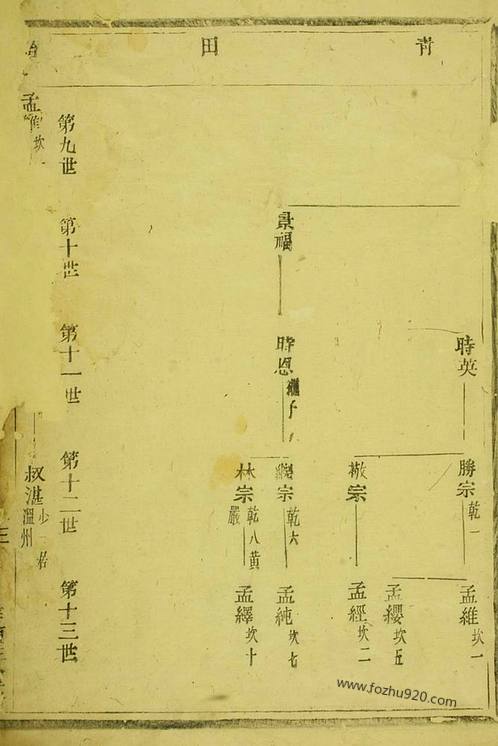 青田
景福
時英
時恩 繼子
勝宗 乾一
敬宗
繼宗 乾六
林宗 乾八黄嚴
孟維 坎一
孟纓 坎五
孟經 坎二
孟純 坎七
孟繹 坎十
第九世
第十世
第十一世
第十二世
第十三世
孟維 坎一
叔湛 溫州
www.fozhu920.com